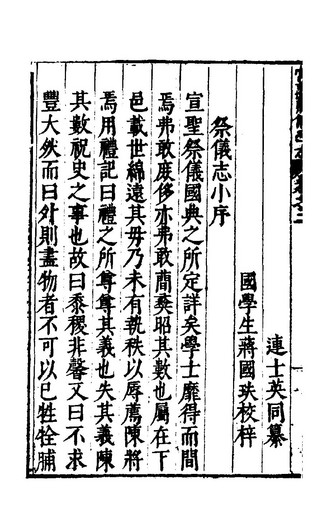 連士英同纂
國學生蔣國玞校梓
祭儀志小序
宣聖祭儀國典之所定詳矣學士靡得而間
焉弗敢廢侈亦弗敢簡褻昭其數也屬在下
邑載世綿遠其毋乃未有執秩以辱薦陳將
焉用禮記曰禮之所尊尊其義也失其義陳
其數祝史之事也故曰黍稷非馨又曰不求
豐大然而曰外則盡物者不可以已牲牷脯